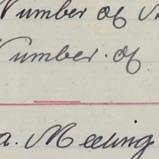 Number of
Number of
a. Meeting